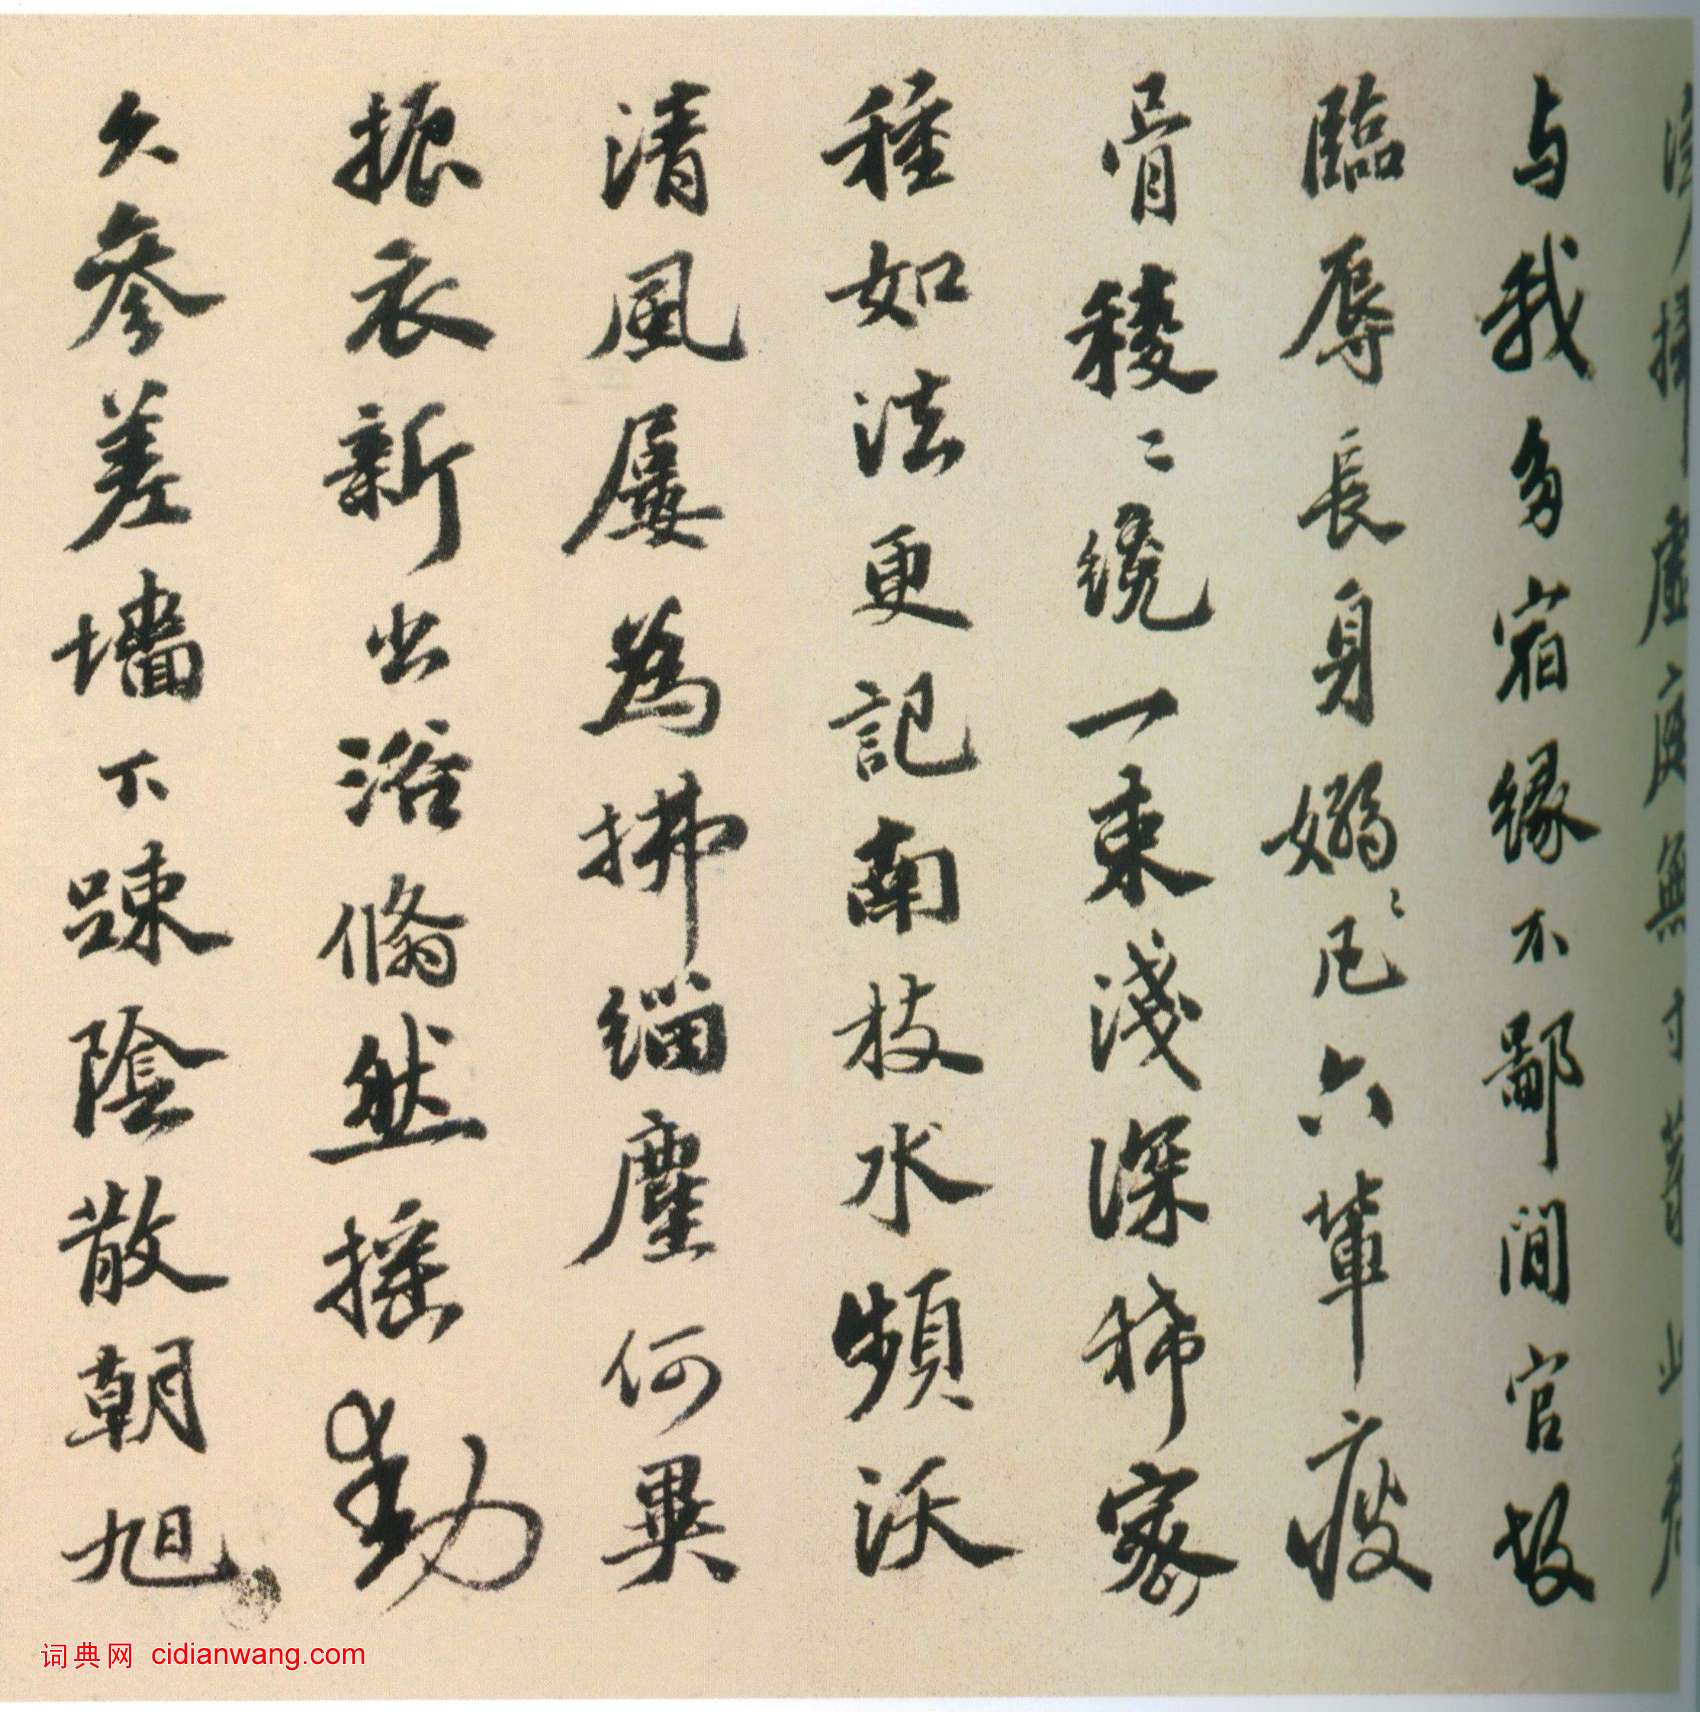 掃虛庭無
与我多宿緣不鄙閒官故
臨辱長身嫋〻凡六輩瘦
骨稜〻纔一束淺深稀密
種如法更記南枝水頻沃
清風屢為拂緇塵何異
振衣新出浴翛然搖動
久參差墻下踈陰散朝旭
词典网 cidianwang.com